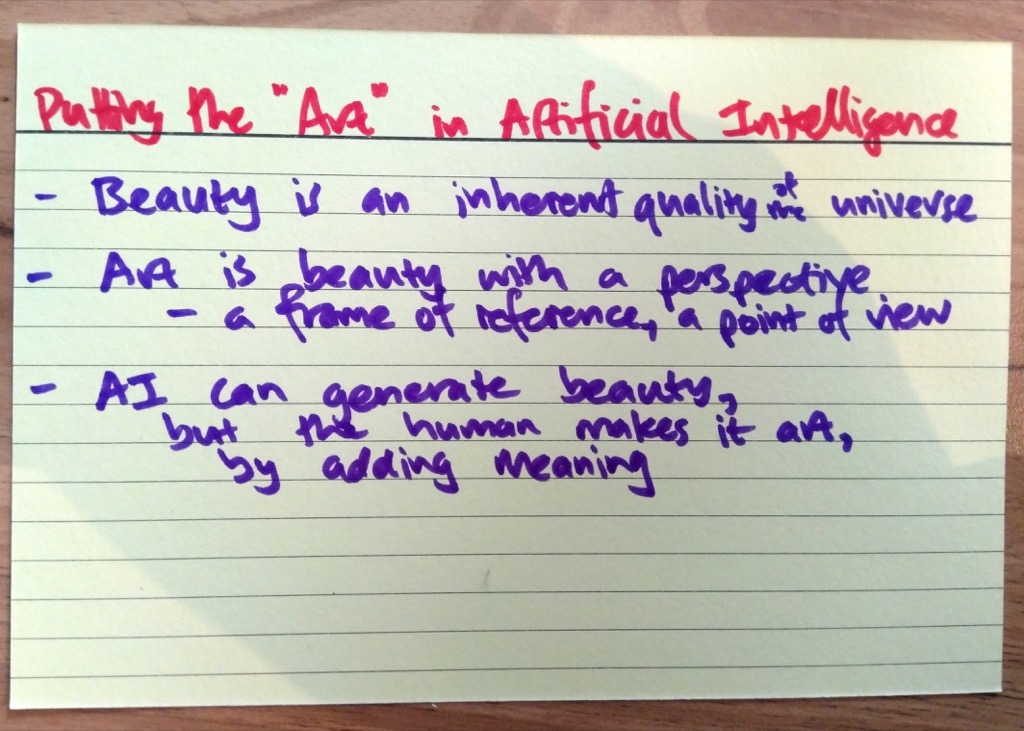 Putting the "Art" in Artificial Intelligence
- Beauty is an inherent quality of the universe
- Art is beauty with a perspective
- a frame of reference, a point of view
- AI can generate beauty,
but the human makes it art,
by adding meaning